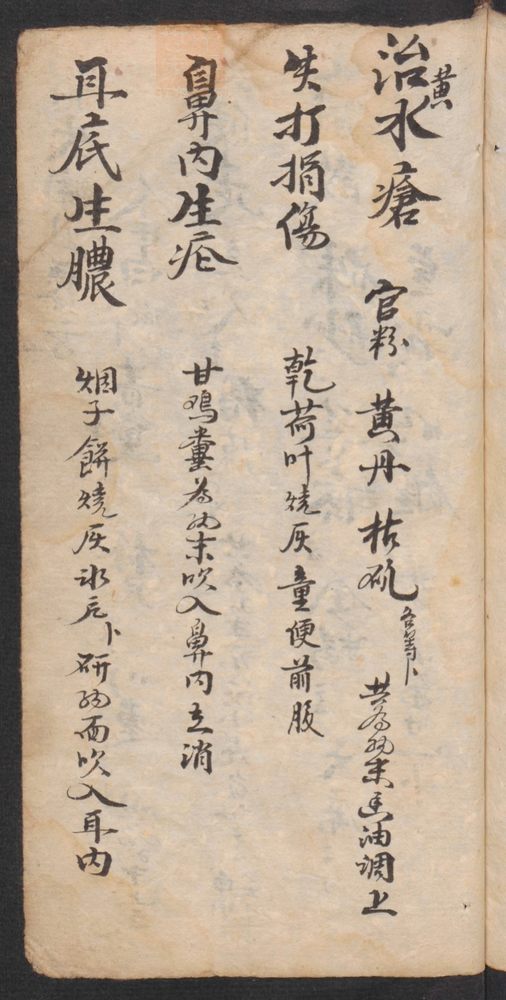 治黄水瘡 官粉 黄丹 枯矾 各等卜 共為細末 香油調上
失打損傷 乾荷叶燒灰童便煎服
鼻内生疮 甘鳮糞為細末吹入鼻内立消
耳底生膿 烟子餅燒灰 氷片卜研細面吹入耳内